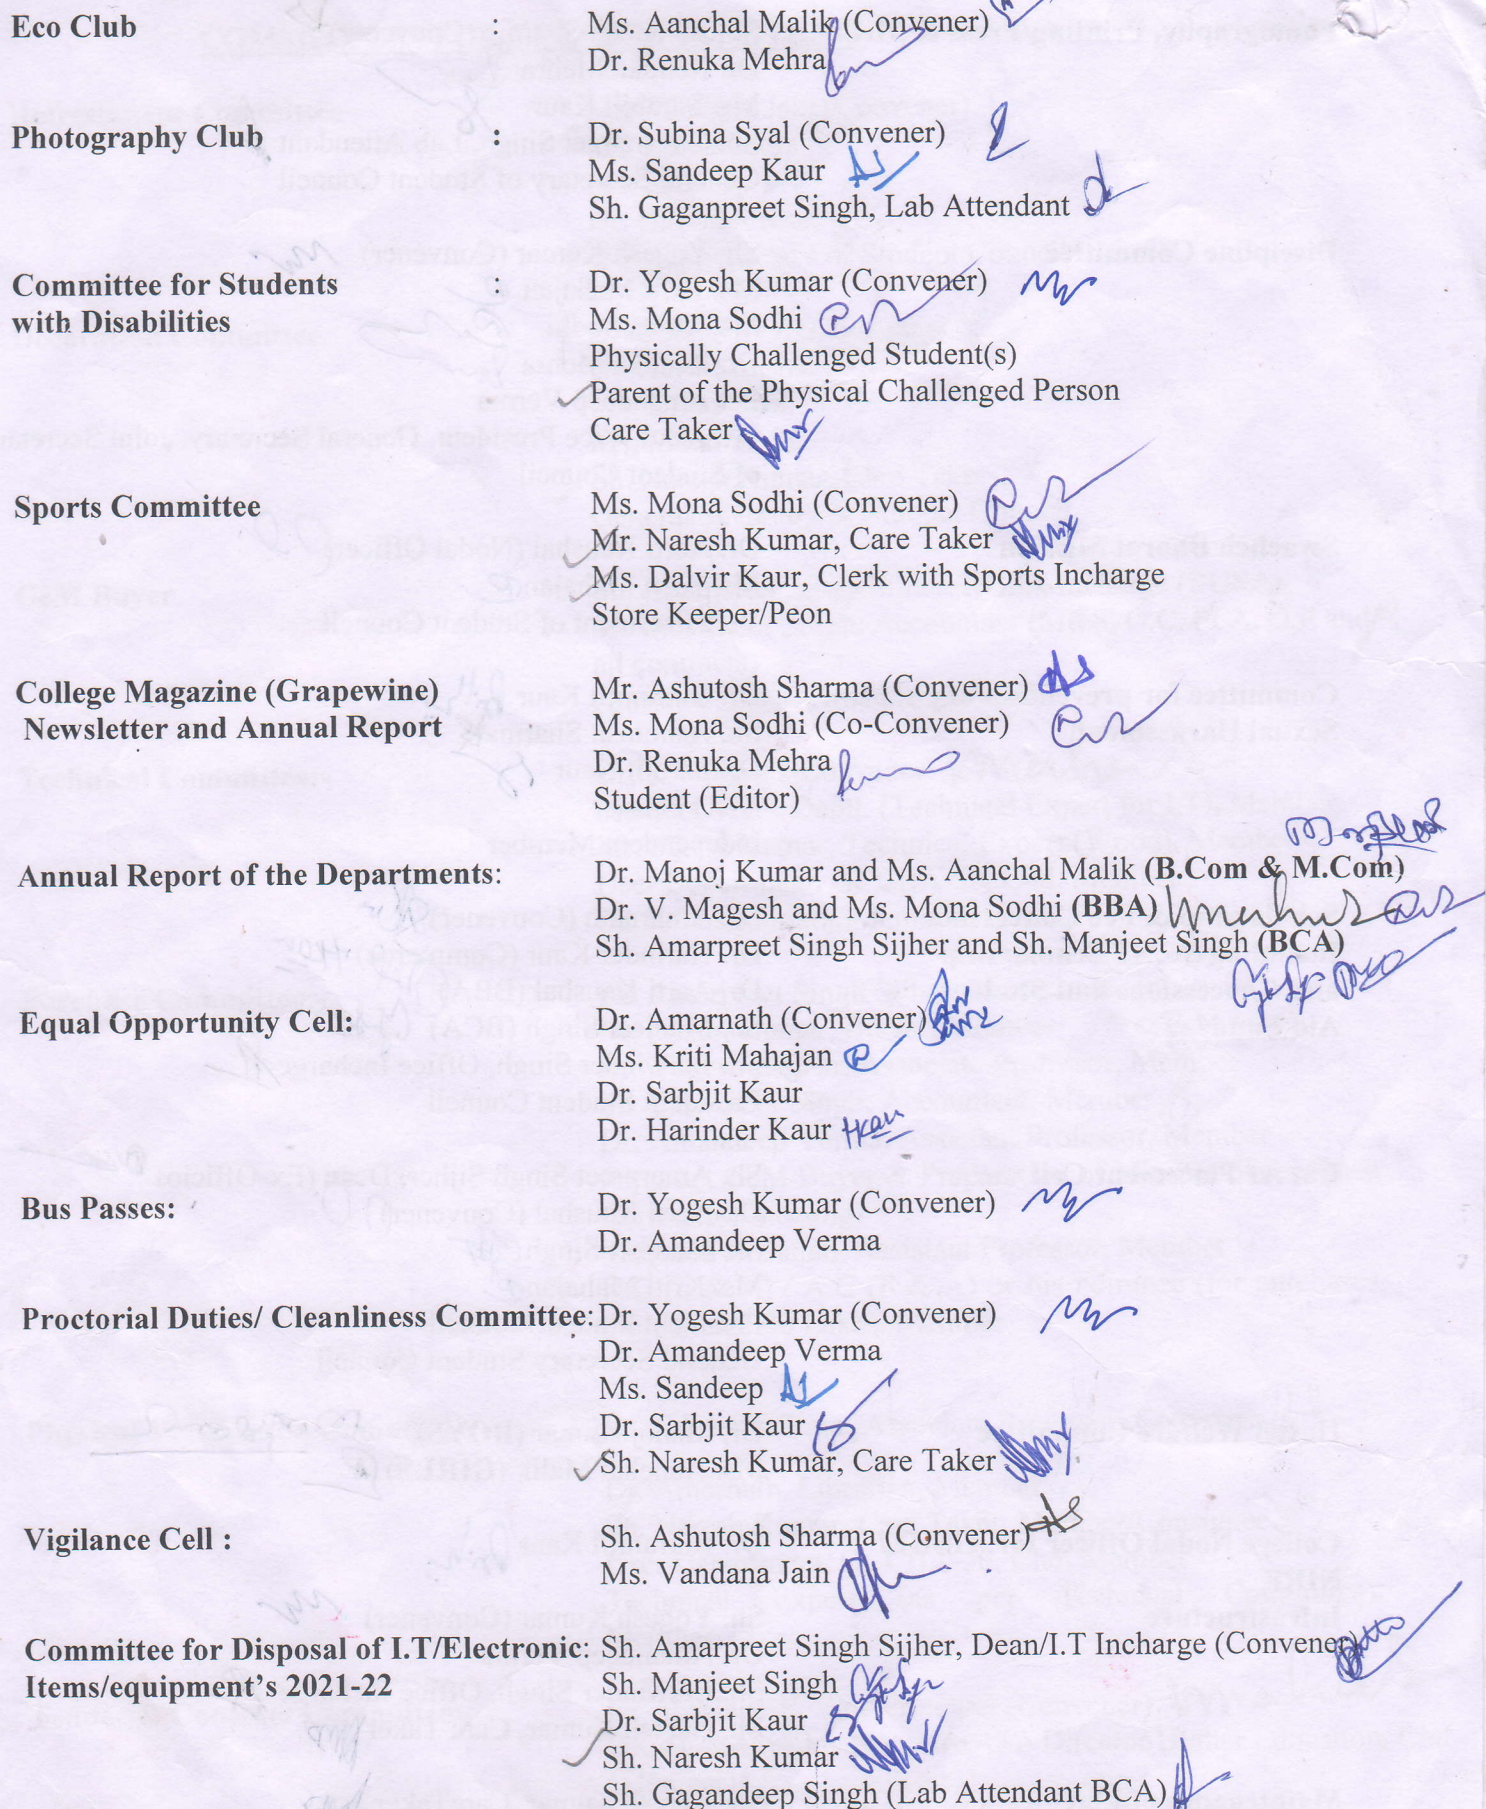 Eco Club : Ms. Aanchal Malik (Convener)
Dr. Renuka Mehra
Photography Club : Dr. Subina Syal (Convener)
Ms. Sandeep Kaur
Sh. Gaganpreet Singh, Lab Attendant
Committee for Students : Dr. Yogesh Kumar (Convener)
with Disabilities Ms. Mona Sodhi
Physically Challenged Student(s)
Parent of the Physical Challenged Person
Care Taker
Sports Committee Ms. Mona Sodhi (Convener)
Mr. Naresh Kumar, Care Taker
Ms. Dalvir Kaur, Clerk with Sports Incharge
Store Keeper/Peon
College Magazine (Grapewine) Mr. Ashutosh Sharma (Convener)
Newsletter and Annual Report Ms. Mona Sodhi (Co-Convener)
Dr. Renuka Mehra
Student (Editor)
Annual Report of the Departments: Dr. Manoj Kumar and Ms. Aanchal Malik (B.Com & M.Com)
Dr. V. Magesh and Ms. Mona Sodhi (BBA)
Sh. Amarpreet Singh Sijher and Sh. Manjeet Singh (BCA)
Equal Opportunity Cell: Dr. Amarnath (Convener)
Ms. Kriti Mahajan
Dr. Sarbjit Kaur
Dr. Harinder Kaur
Bus Passes: Dr. Yogesh Kumar (Convener)
Dr. Amandeep Verma
Proctorial Duties/ Cleanliness Committee: Dr. Yogesh Kumar (Convener)
Dr. Amandeep Verma
Ms. Sandeep
Dr. Sarbjit Kaur
Sh. Naresh Kumar, Care Taker
Vigilance Cell : Sh. Ashutosh Sharma (Convener)
Ms. Vandana Jain
Committee for Disposal of I.T/Electronic: Sh. Amarpreet Singh Sijher, Dean/I.T Incharge (Convener)
Items/equipment's 2021-22 Sh. Manjeet Singh
Dr. Sarbjit Kaur
Sh. Naresh Kumar
Sh. Gagandeep Singh (Lab Attendant BCA)